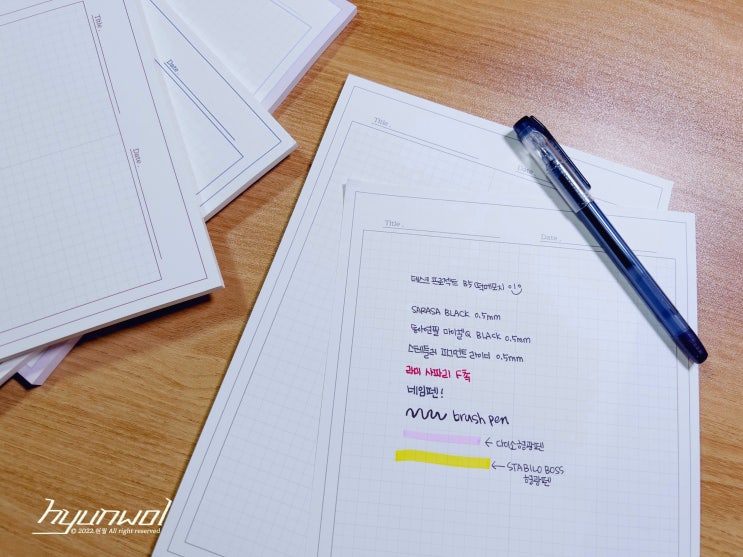 Title.
Date.
Date.
Title.
Title.
Date.
데스크 프로젝트 B5 떡메모지
SARASA BLACK 0.5mm
동아연필 마이젤Q BLACK 0.5mm
스테들러 피그먼트 라이너 0.5mm
라미 사파리 F촉
네임펜!
brush pen
← 다이소형광펜
← STABILO BOSS
형광펜
hyunwol
© 2022. 현월 All right reserved